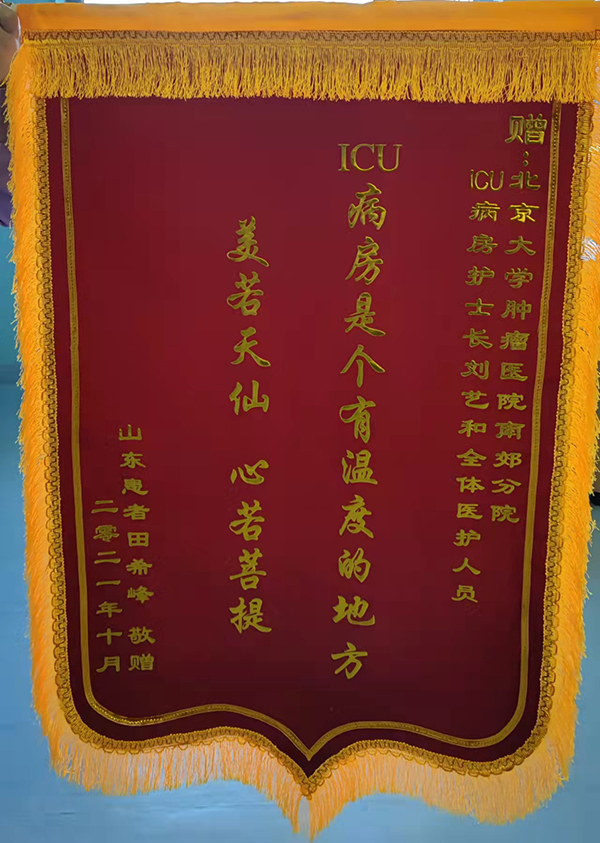 赠:北京大学肿瘤医院南郊分院
iCU病房护士长刘艺和全体医护人员
ICU病房是个有温度的地方
美若天仙 心若菩提
山东患者田希峰 敬赠
二零二一年十月